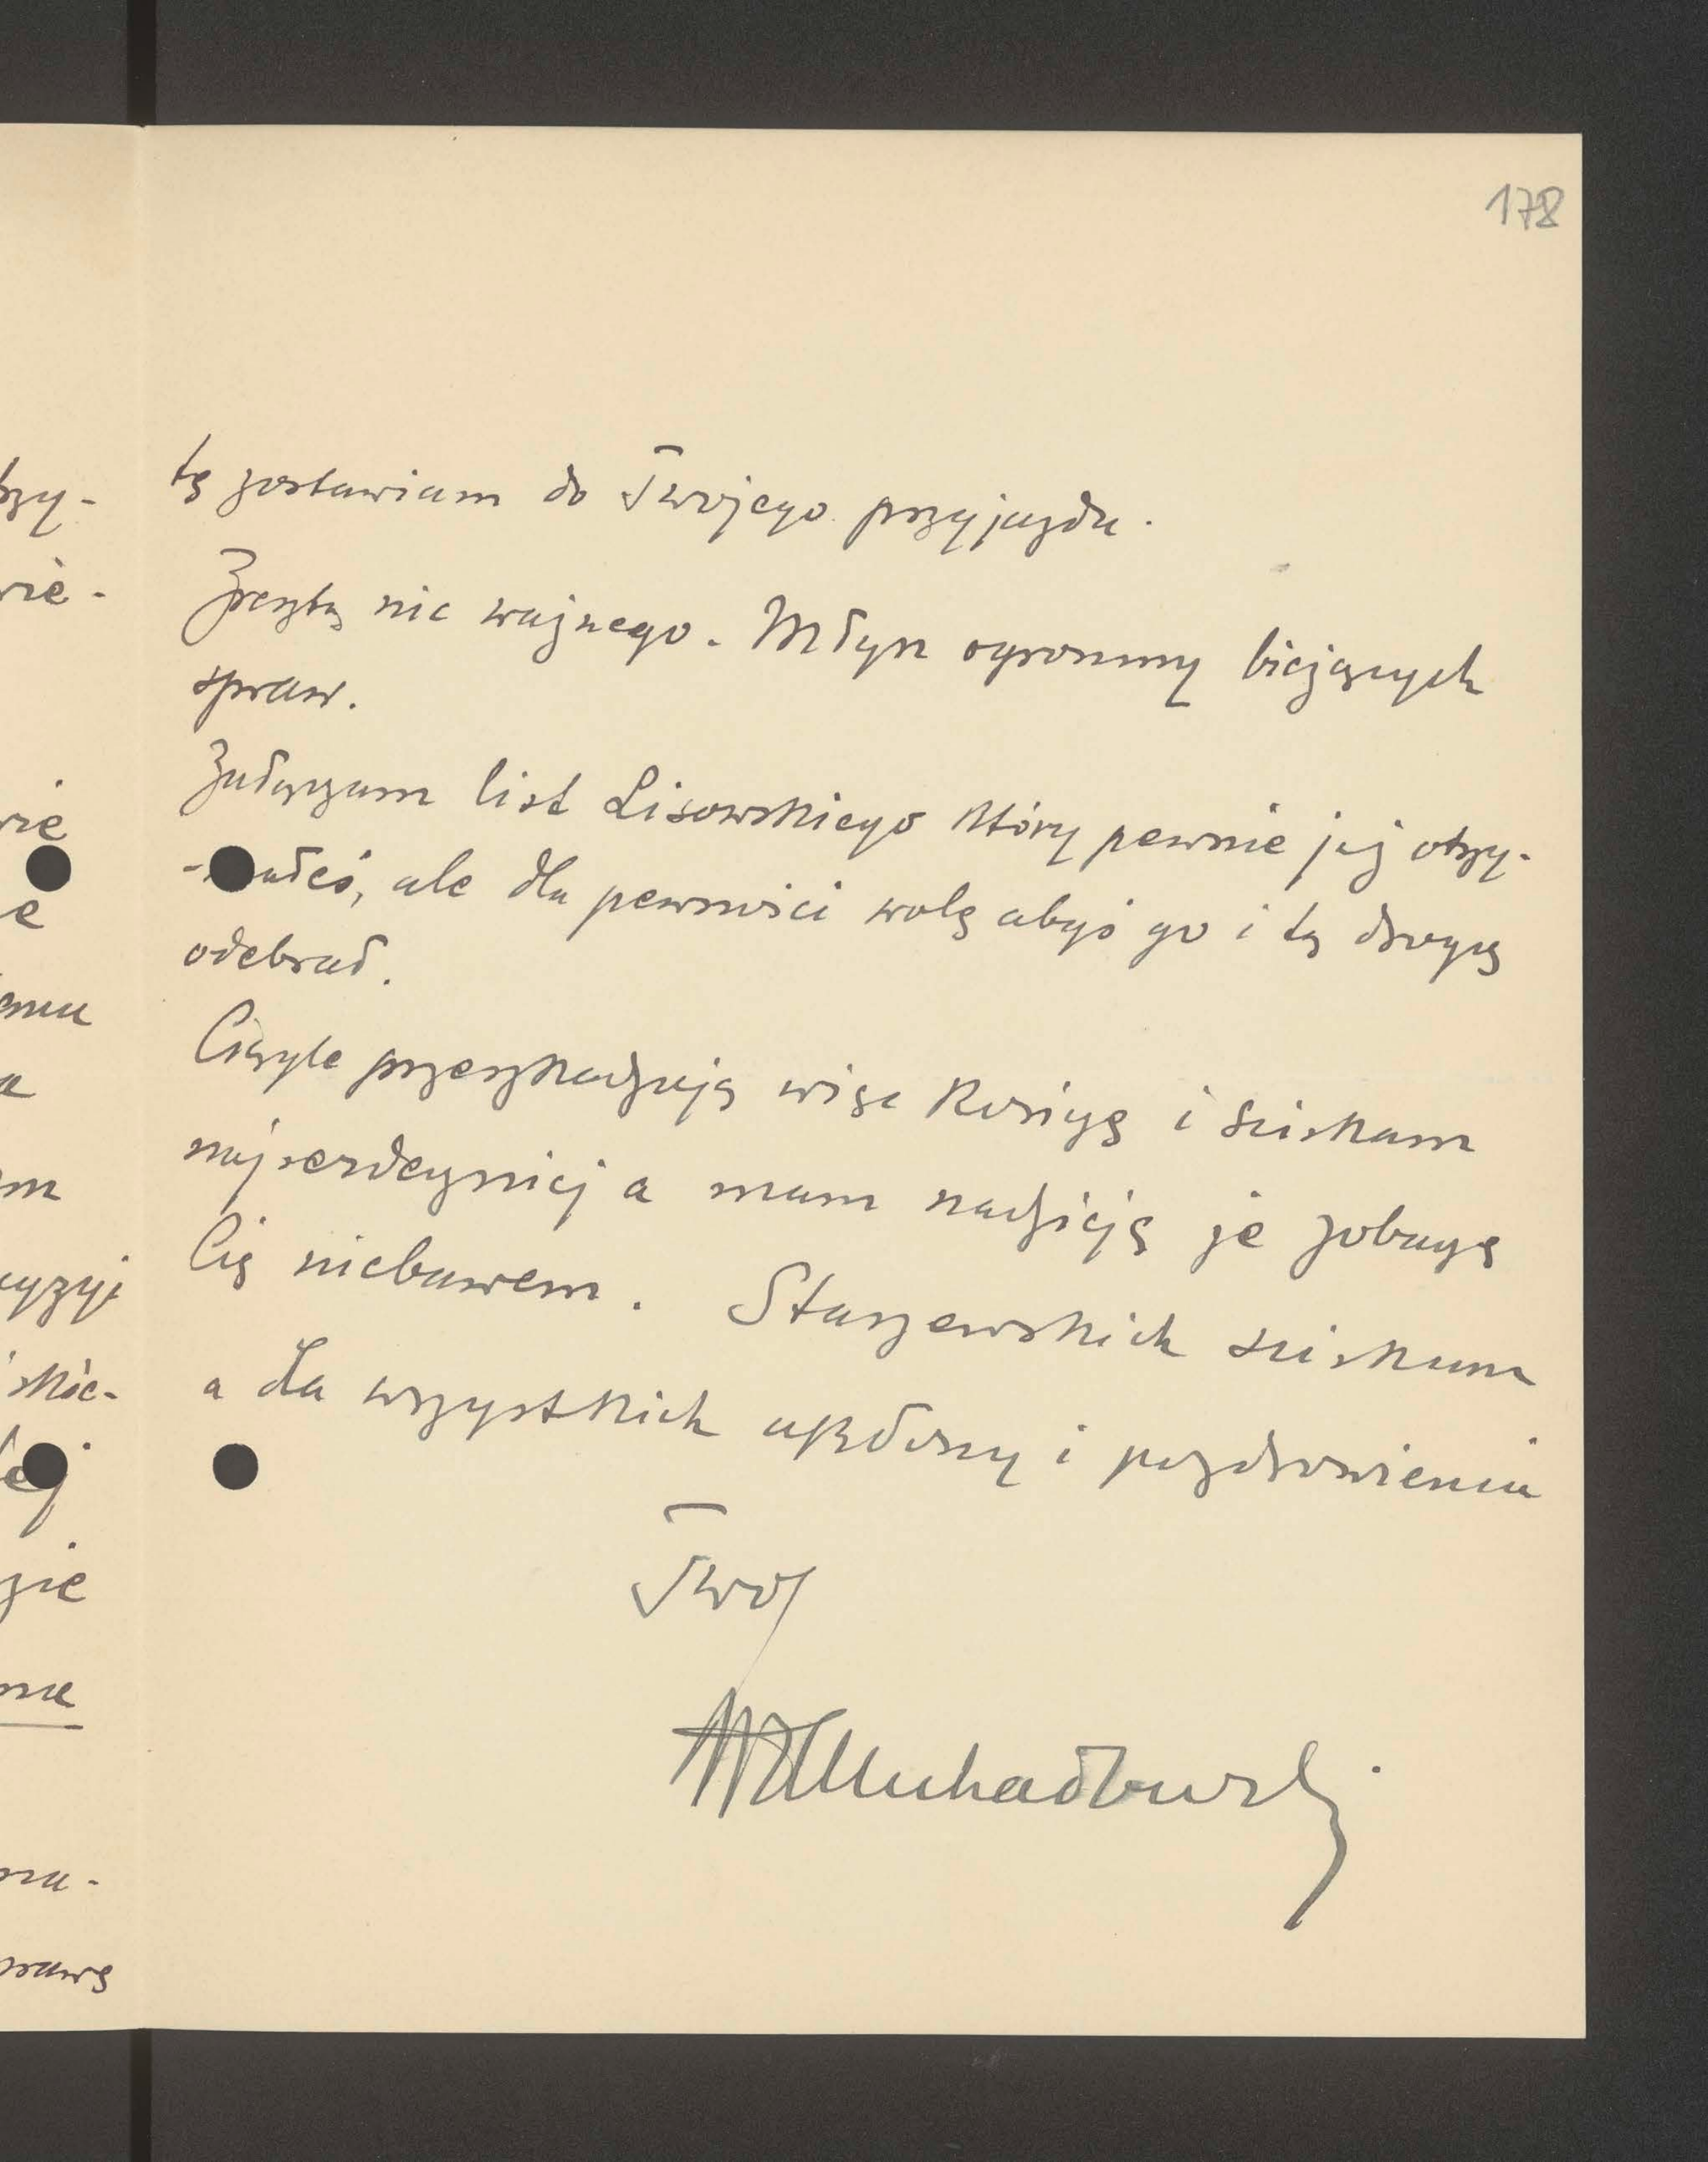 178
tę zostawiam do Twojego przyjazdu.
Zresztą nic ważnego. Młyn ogromny bieżących
spraw.
Załączam list Lisowskiego który pewnie już otrzy-
-małeś, ale dla pewności wolę abyś go i tą drogą
odebrał.
Ciągle przeszkadzają więc kończę i ściskam
najserdeczniej a mam nadzieję że zobaczę
Cię niebawem. Staszewskich ściskam
a dla wszystkich ukłony i pozdrowienia
Twój